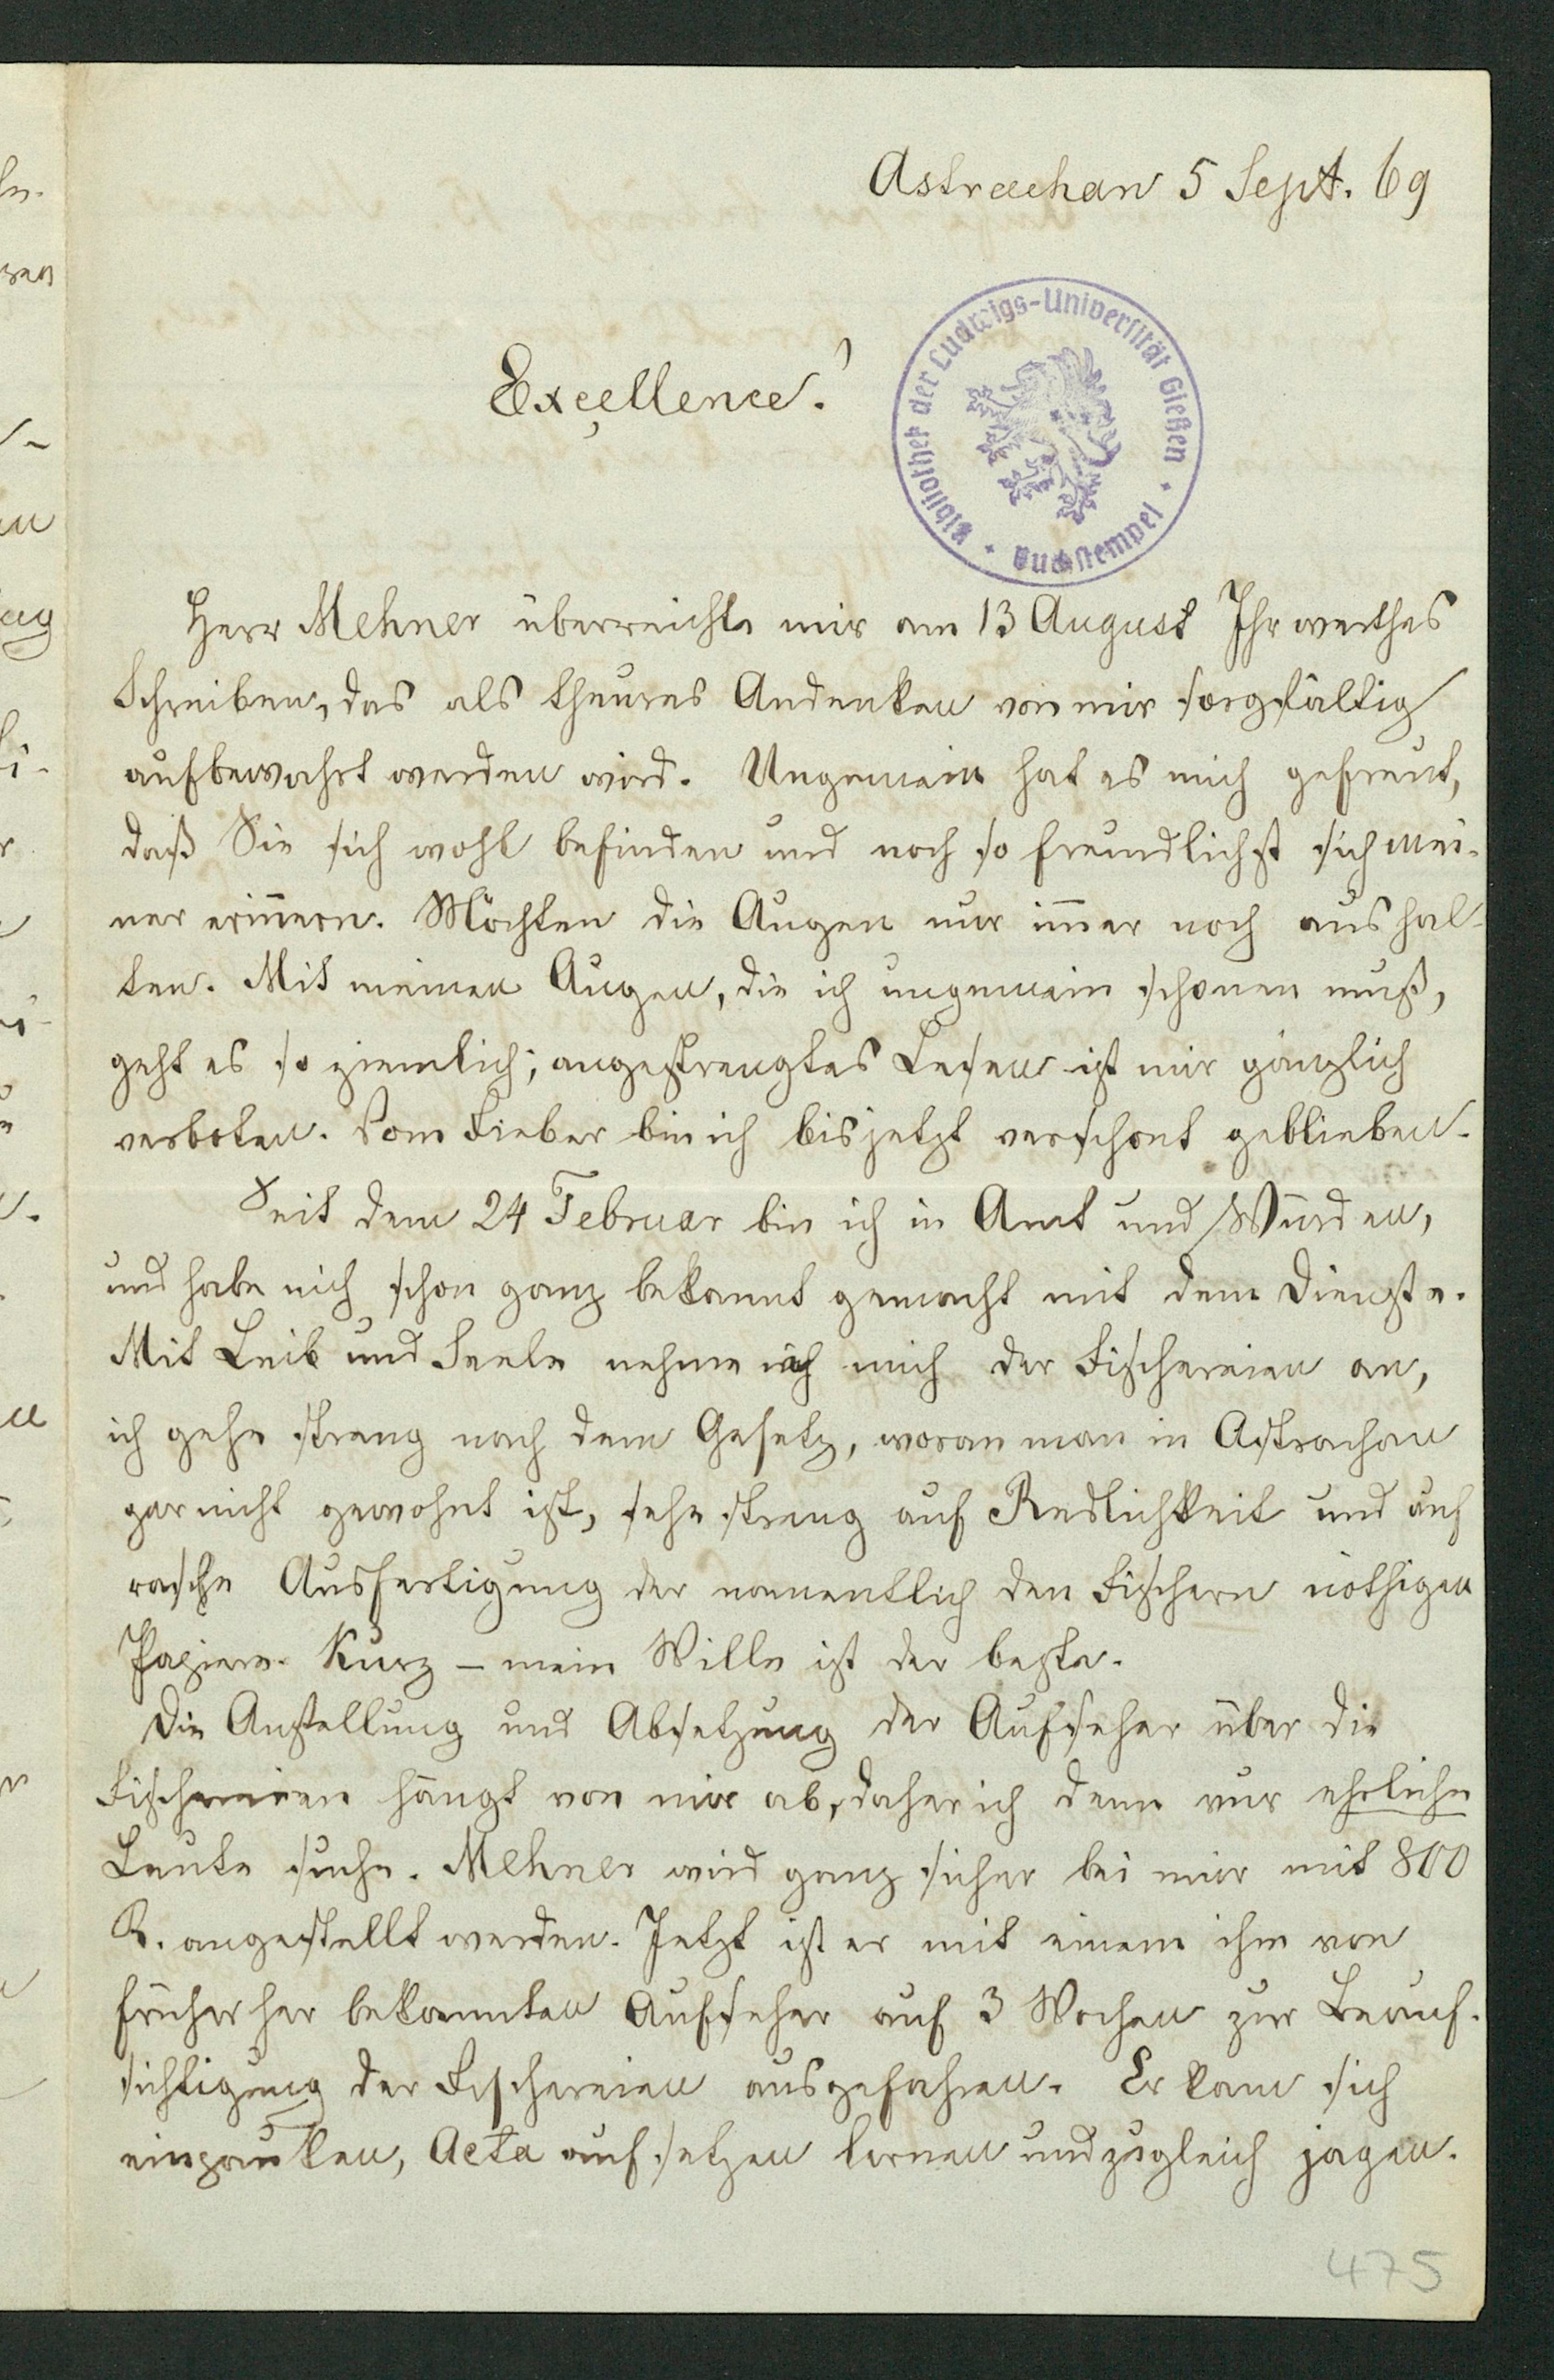 Astrachan 5 Sept. 69
Excellence!
Bibliothek der Ludwigs-Universität Gießen
Buchstempel
Herr Mehner überreichte mir am 13 August Ihr werthes
Schreiben, das als theures Andenken von mir sorgfältig
aufbewahrt werden wird. Ungemein hat es mich gefreut,
daß Sie sich wohl befinden und noch so freundlichst sich mei-
ner erin̄ern. Möchten die Augen nur im̄er noch aushal-
ten. Mit meinen Augen, die ich ungemein schonen muß,
geht es so ziemlich; angestrengtes Lesen ist mir gänzlich
verboten. Vom Fieber bin ich bis jetzt verschont geblieben.
Seit dem 24 Februar bin ich in Amt und Würden,
und habe mich schon ganz bekannt gemacht mit dem Dienste.
Mit Leib und Seele nehme ich mich der Fischereien an,
ich gehe streng nach dem Gesetz, woran man in Astrachan
gar nicht gewohnt ist, sehe streng auf Redlichkeit und auf
rasche Ausfertigung der namentlich den Fischern nöthigen
Papiere. Kurz – mein Wille ist der beste.
Die Anstellung und Absetzung der Aufseher über die
Fischereien hängt von mir ab, daher ich denn nur ehrliche
Leute suche. Mehner wird ganz sicher bei mir mit 800
R. angestellt werden. Jetzt ist er mit einem ihm von
früher her bekannten Aufseher auf 3 Wochen zur Beauf-
sichtigung der Fischereien ausgefahren. Er kann sich
einpauken, Acta aufsetzen lernen und zugleich jagen.
475